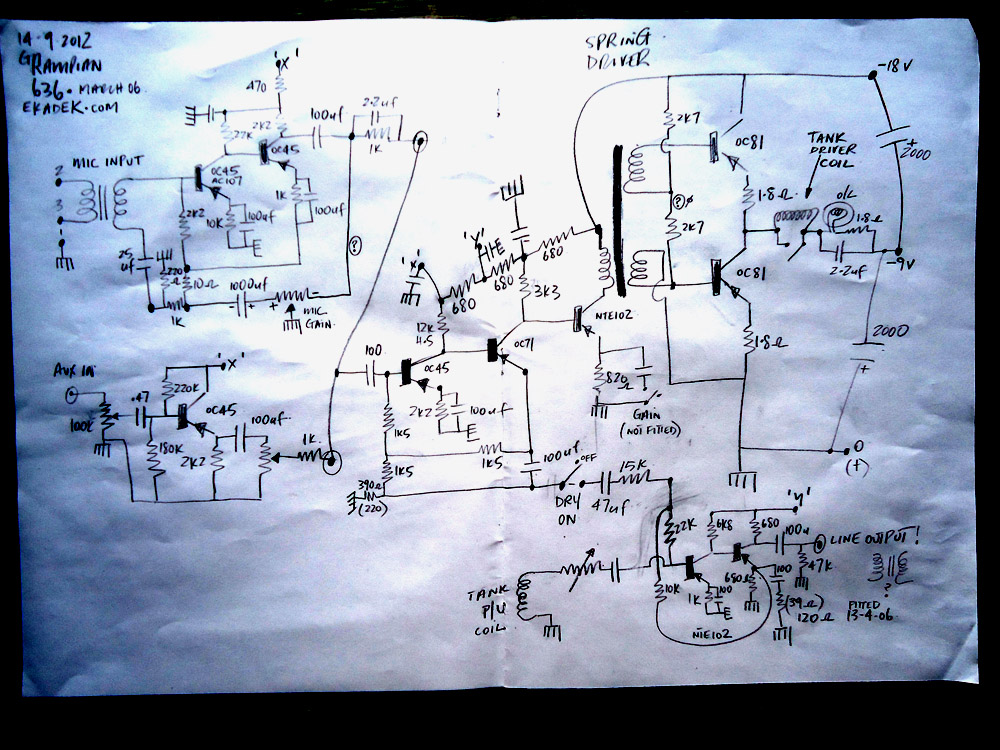 14.9.2012
GRAMPIAN
636. MARCH 06.
EKADEK.COM
SPRING
DRIVER
'X'
470
22K
2K2
OC45
100uf
2.2uf
1K
MIC INPUT
2
3
1
OC45
AC107
2K2
10K
100uf
E
1K
100uf
25
uf
220
Ω
10Ω
1K
1000uf
- +
+ -
MIC
GAIN
?
-18V
2K7
OC81
TANK
DRIVER
COIL
+
2000
1.8Ω
O/L
1.8Ω
? Ø
2K7
2.2uf
-9V
OC81
1.8Ω
2000
+
0
(+)
'X'
'Y'
E
680
680
680
3K3
12K
4.5
100
OC45
OC71
NTE102
2K2
100uf
E
820
Ω
GAIN
(NOT FITTED)
1K5
1K5
1K5
100uf
390Ω
(220)
OFF
DRY
ON
47uf
15K
AUX IN
100K
.47
220K
'X'
OC45
180K
2K2
100uf
1K
TANK
P/U
COIL
22K
10K
6K8
680
'Y'
100u
LINE OUTPUT!
47K
1K
100
E
680Ω
100
(39Ω)
120Ω
NTE102
?
FITTED
13-4-06.